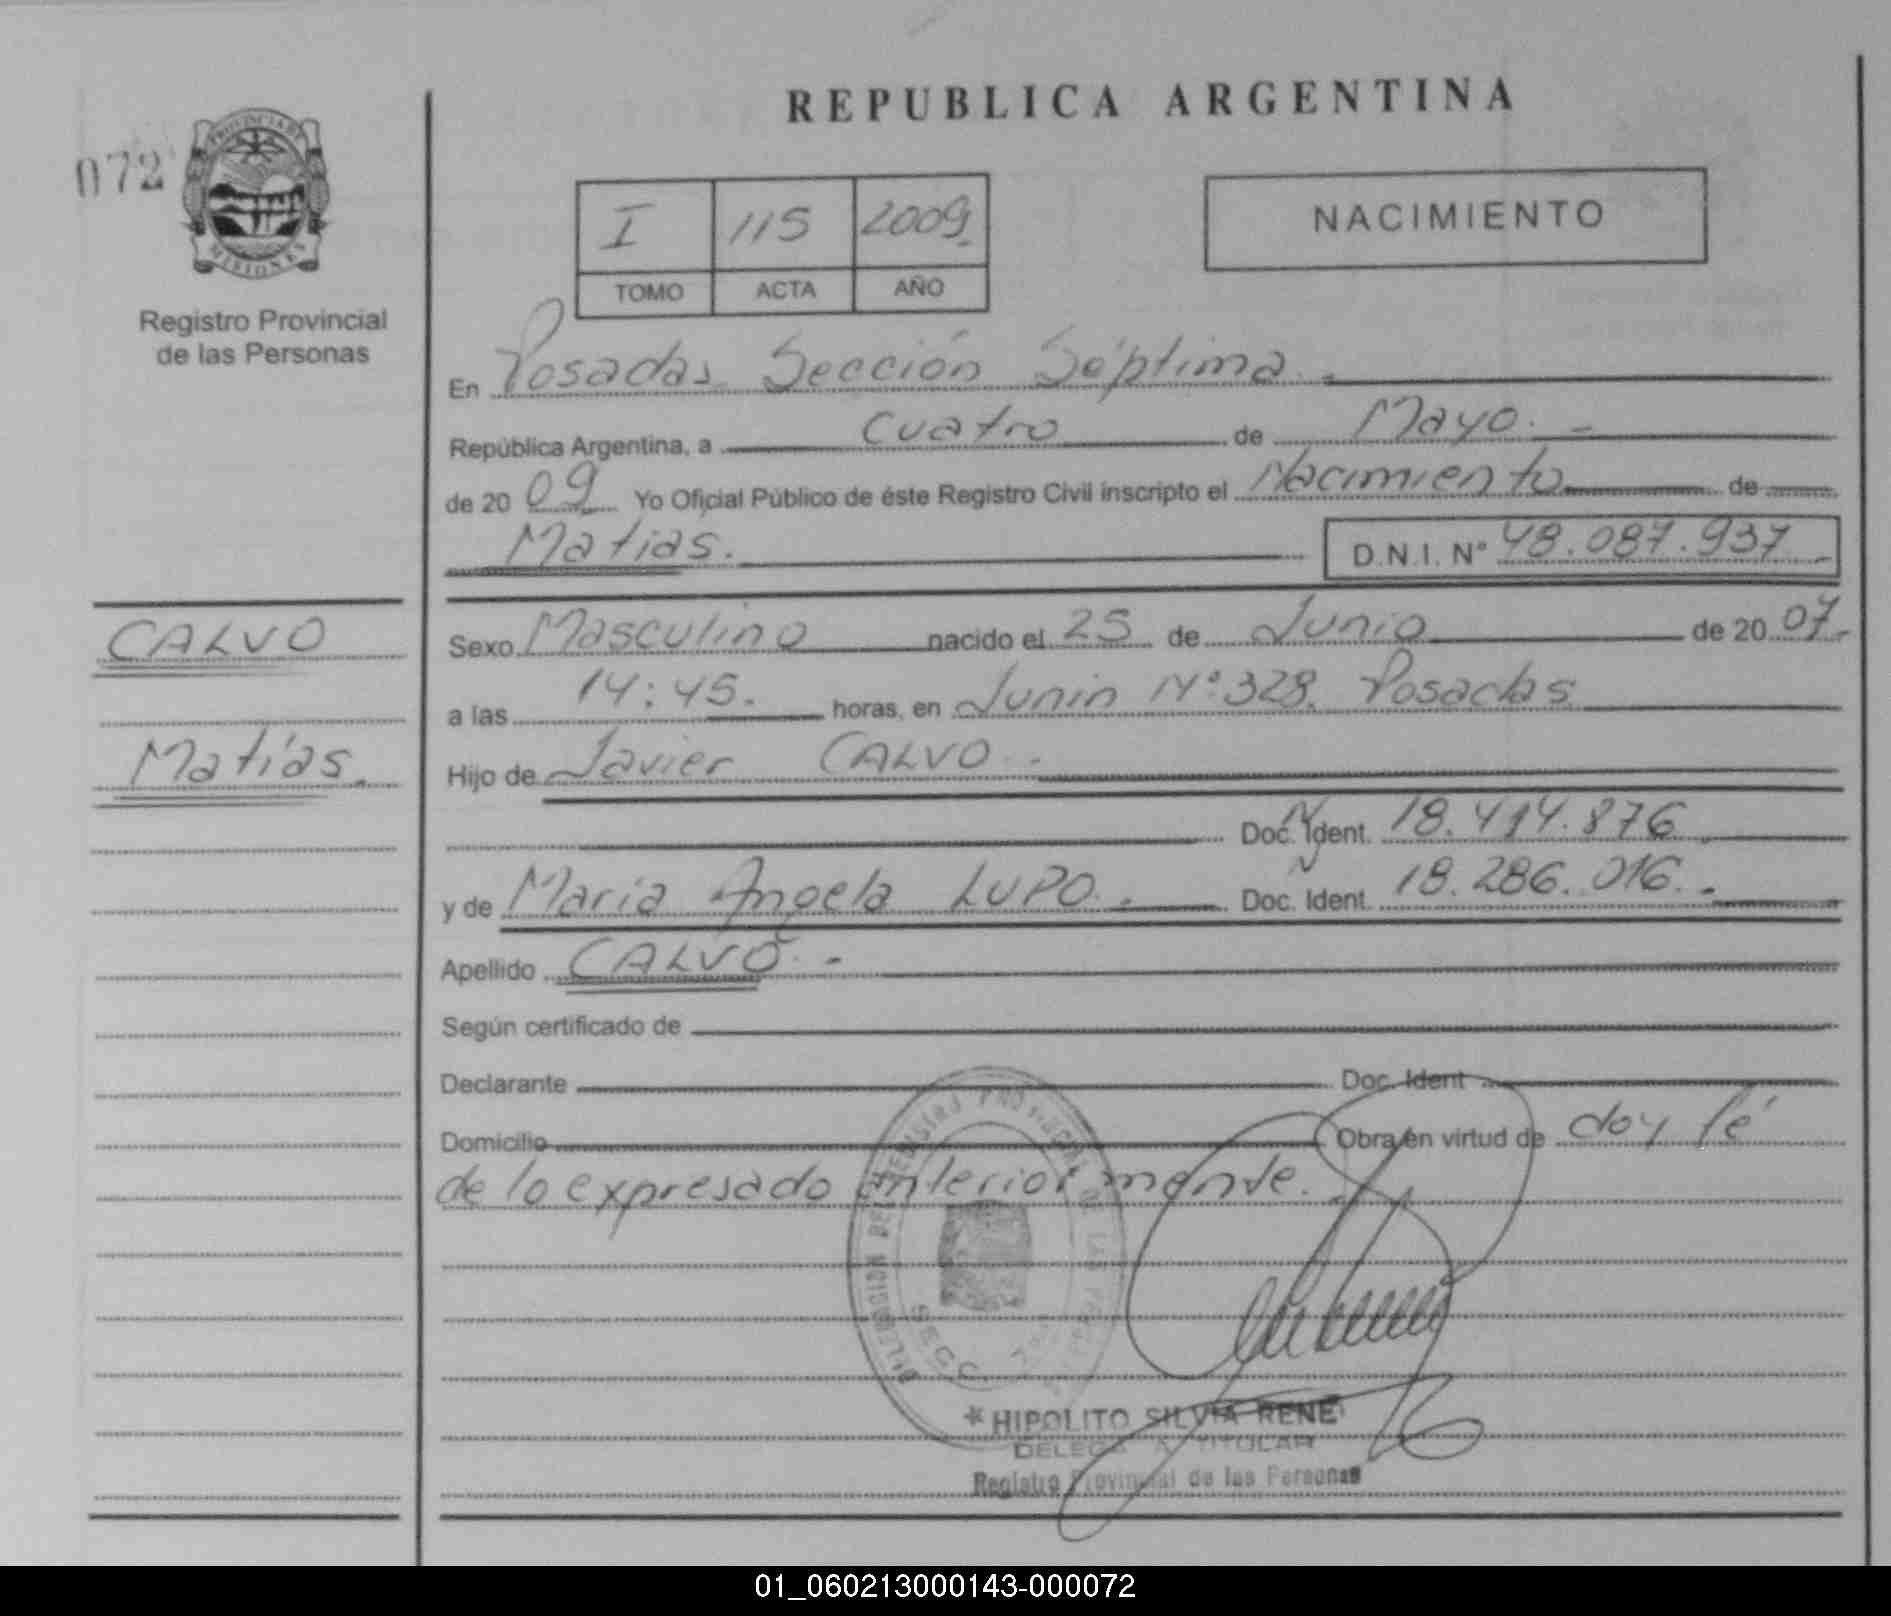 REPUBLICA ARGENTINA
072
PROVINCIA DE
MISIONES
Registro Provincial
de las Personas
I 115 2009
TOMO ACTA AÑO
NACIMIENTO
En Posadas Sección Séptima.
República Argentina, a Cuatro de Mayo.
de 20 09 Yo Oficial Público de éste Registro Civil inscripto el Nacimiento de
Matias. D.N.I. N° 48.087.937
CALVO
Matías.
Sexo Masculino nacido el 25 de Junio de 20 07.
a las 14:45. horas, en Junin N° 328. Posadas
Hijo de Javier CALVO.
Doc. Ident. 18.414.876
y de Maria Angela LUPO. Doc. Ident. 18.286.016.
Apellido CALVO.
Según certificado de
Declarante Doc. Ident
Domicilio Obra en virtud de doy fé
de lo expresado anteriormente.
HIPOLITO SILVIA RENE
DELEGADA TITULAR
Registro Provincial de las Personas
01_060213000143-000072